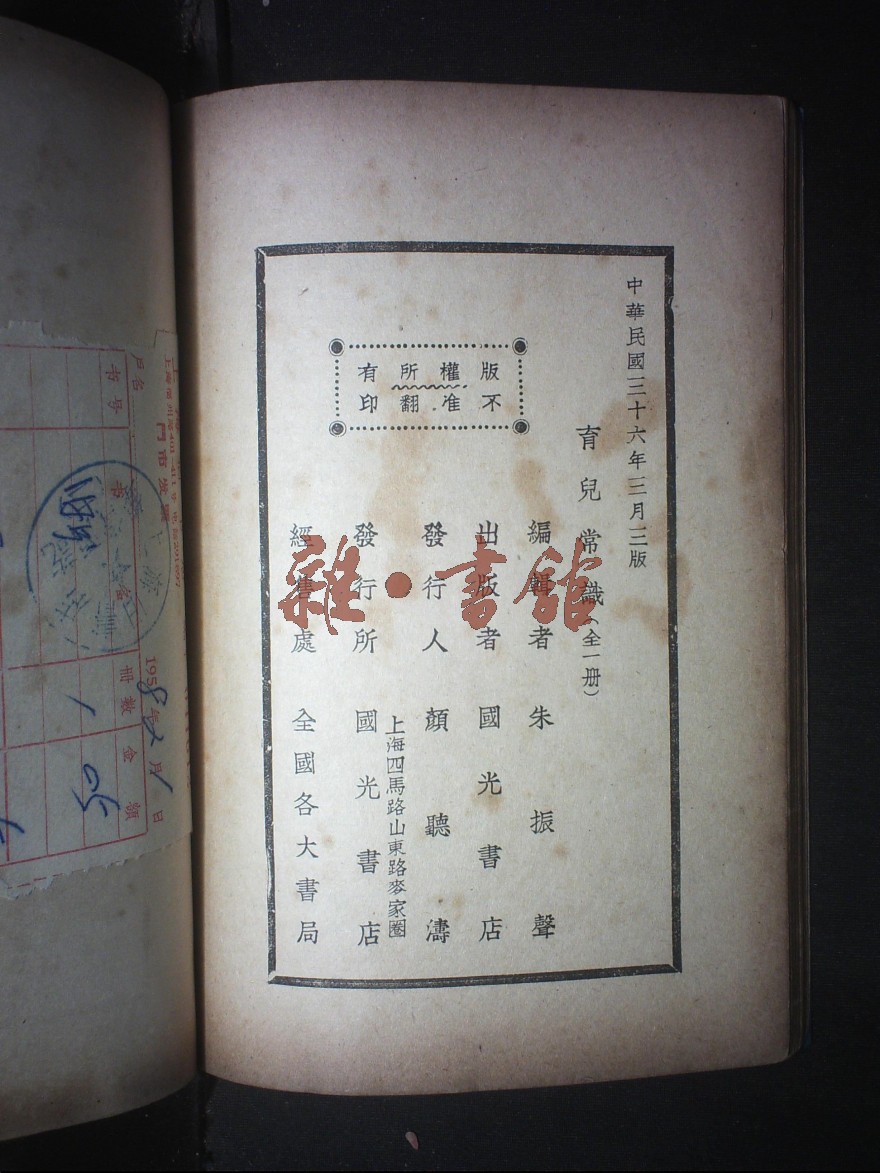 中華民國三十六年三月三版
育兒常識（全一册）
編輯者 朱振聲
出版者 國光書店
發行人 顏聽濤
上海四馬路山東路麥家圈
發行所 國光書店
經售處 全國各大書局
版權所有
不准翻印
雜·書館
戶名
书号
书名
册数
金額
門市发票
1958年2月1日
1
50